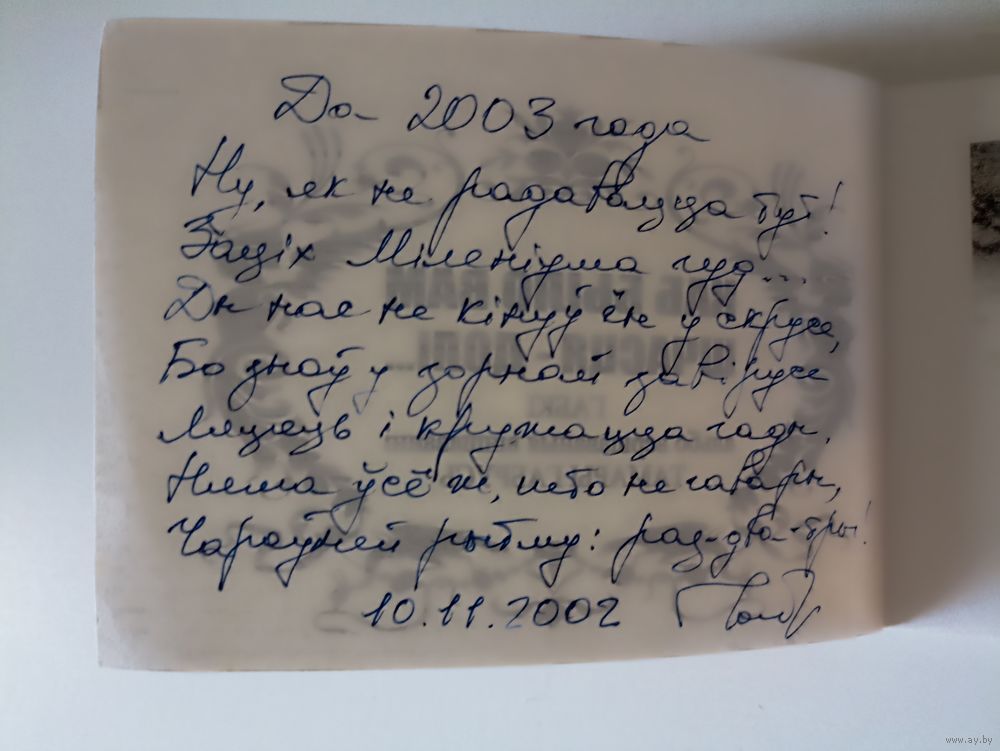 Да 2003 года
Ну, як не радавацца тут!
Заціх Міленіума гуд...
Ды нас не кінуў ён у скрусе,
Бо зноў у зорнай завірусе
Ляцець і кружацца гады.
Няма ўсё ж, што не гавары,
Чароўней рытму: раз-два-тры!
10.11.2002
www.ay.by